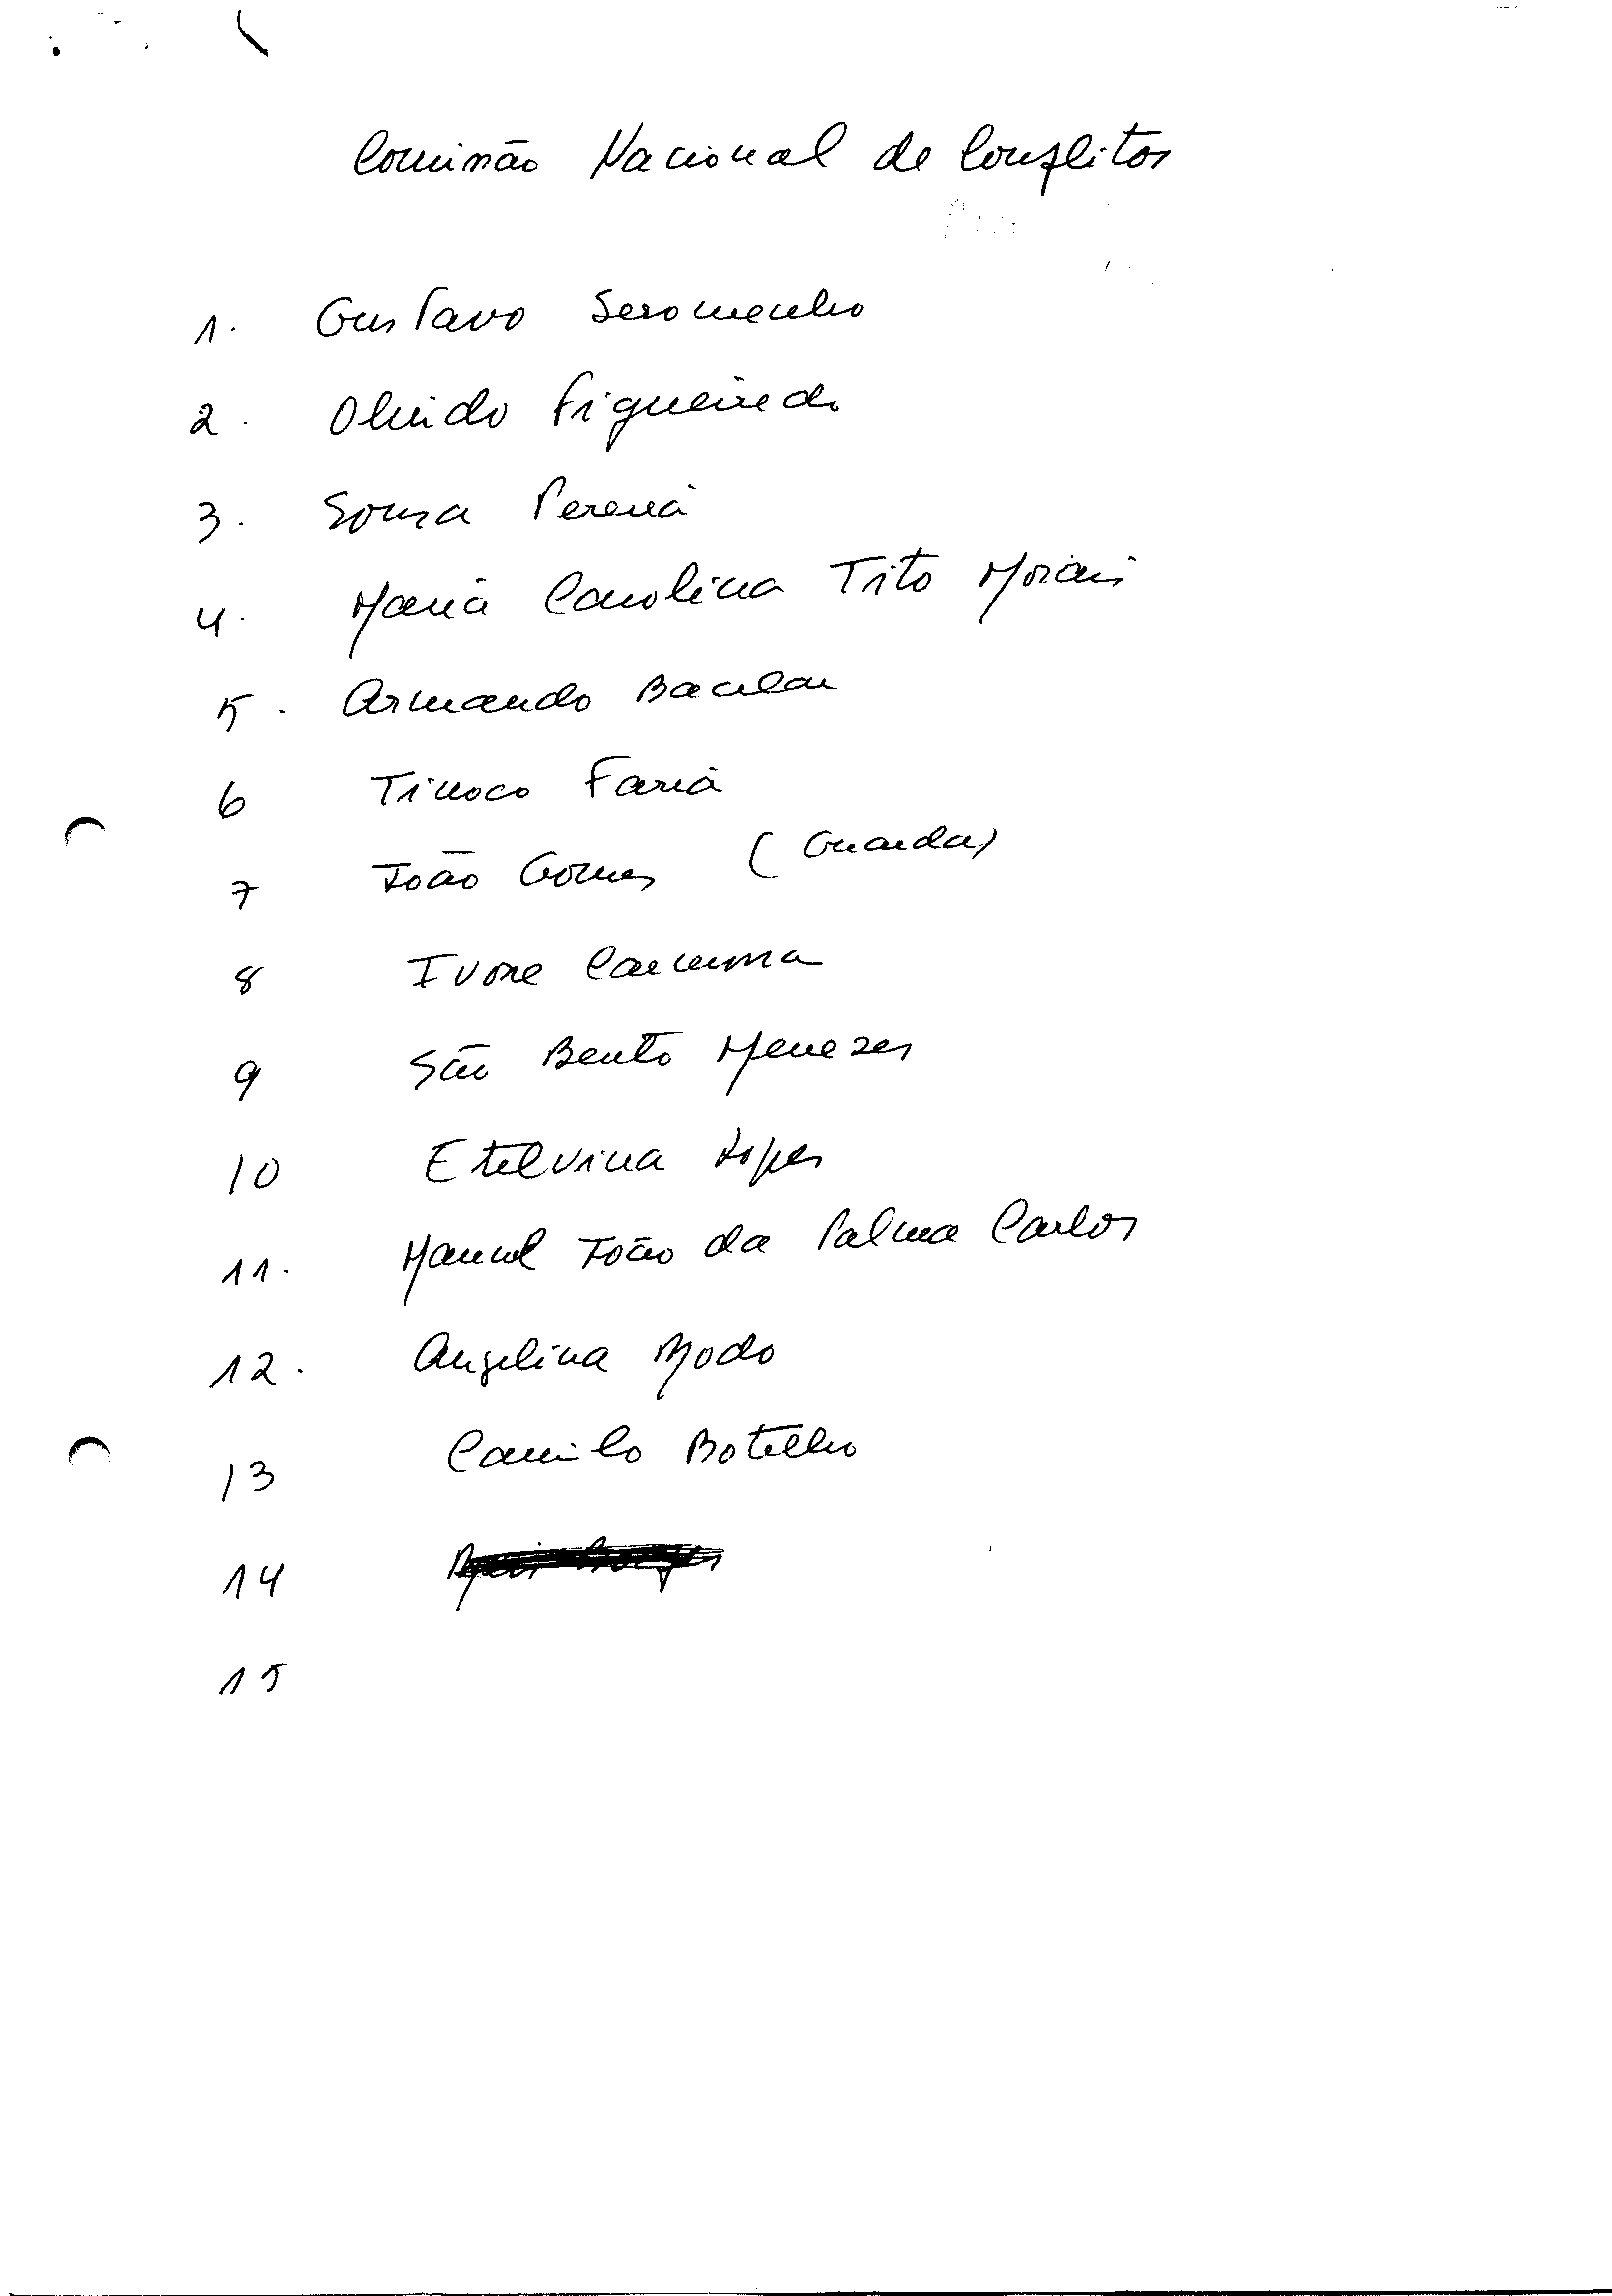 Comissão Nacional de Conflitos
1. Gustavo Seromenho
2. Olindo Figueiredo
3. Sousa Pereira
4. Maria Carolina Tito Morais
5. Armando Bacelar
6 Tinoco Faria
7 João Gomes (Guarda)
8 Ivone
9 São Bento Menezes
10 Etelvina Lopes
11. Manuel João da Palma Carlos
12. Angelina Modo
13 Camilo Botelho
14
15